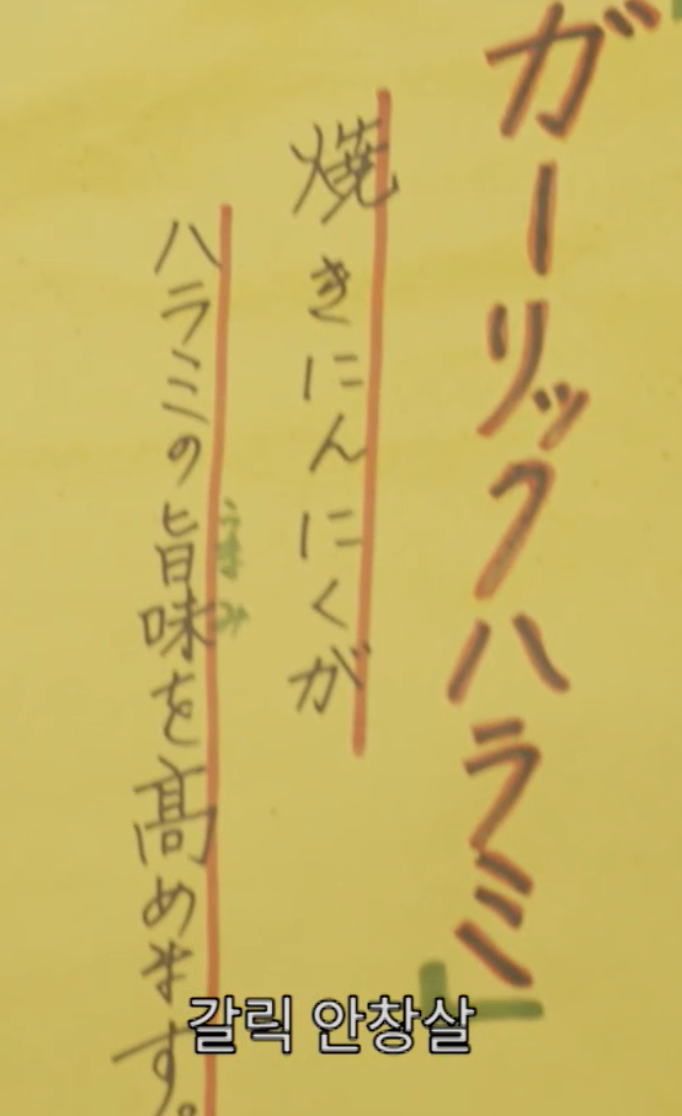 「ガーリックハラミ」
焼きにんにくが
ハラミの旨味を高めます。
うまみ
갈릭 안창살